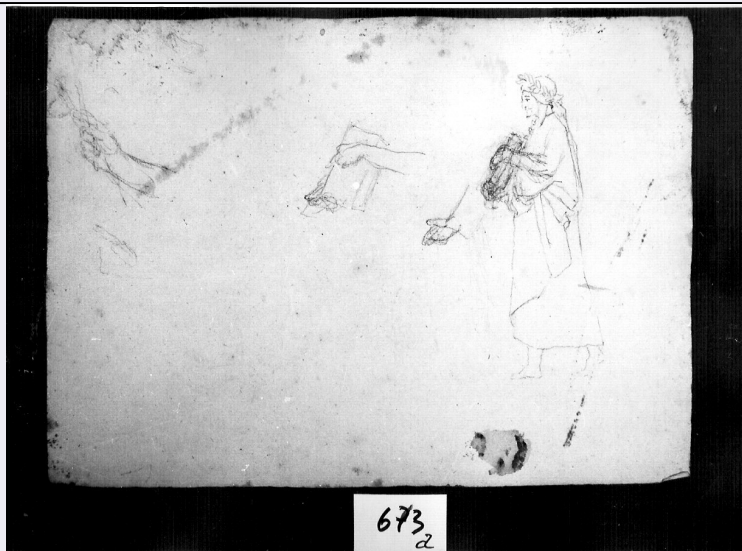 673
a